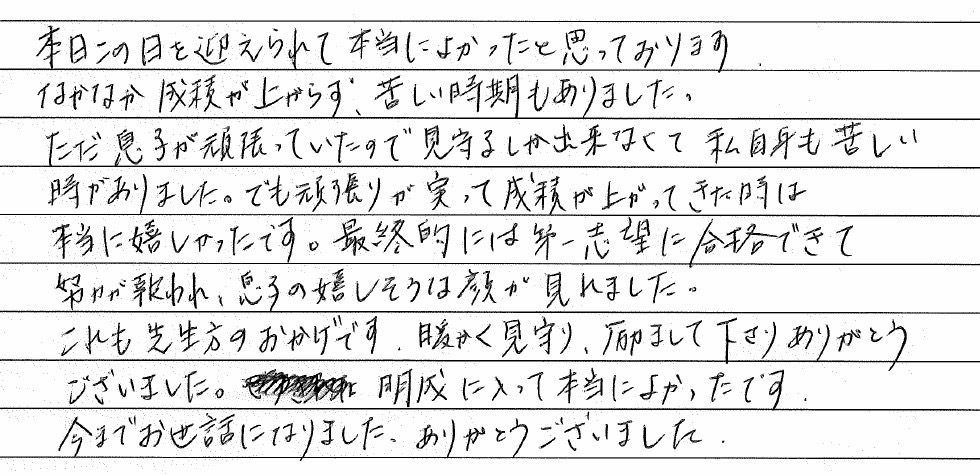 本日この日を迎えられて本当によかったと思っております.
なかなか成積が上がらず、苦しい時期もありました。
ただ息子が頑張っていたので見守るしか出来なくて私自身も苦しい
時がありました。でも頑張りが実って成積が上がってきた時は
本当に嬉しかったです。最終的には第一志望に合格できて
努力が報われ、息子の嬉しそうな顔が見れました。
これも先生方のおかげです.暖かく見守り、励まして下さりありがとう
ございました。明成に入って本当によかったです.
今までお世話になりました、ありがとうございました.